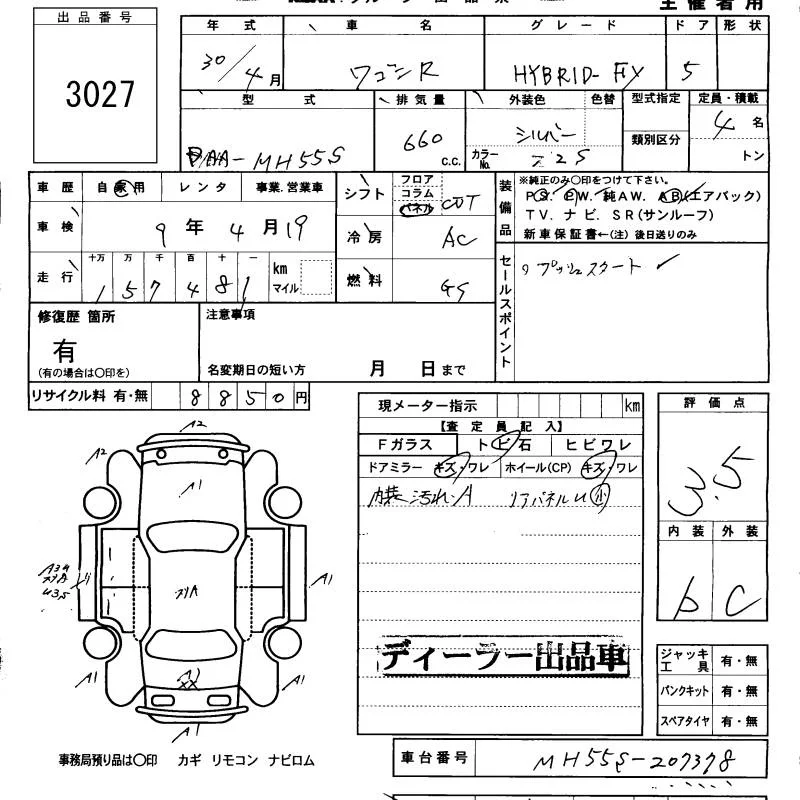 主催者用
出品番号
3027
年式 車名 グレード ドア 形状
30/4月 ワゴンR HYBRID-FX 5
型式 排気量 外装色 色替 型式指定 定員・積載
DAA-MH55S 660 c.c. シルバー 類別区分 4名
カラーNo. Z2S トン
車歴 自家用 レンタ 事業.営業車
車検 9年4月19
走行 十万 万 千 百 十 一 km マイル
157481
シフト フロア コラム パネル CVT
冷房 AC
燃料 GS
装備品
※純正のみ〇印をつけて下さい。
P.S. P.W. 純AW. A.B(エアバック)
T V. ナ ビ. S R (サンルーフ)
新車保証書←(注) 後日送りのみ
セールスポイント
プッシュスタート ✓
修復歴 箇所
有
(有の場合は〇印を)
注意事項
名変期日の短い方 月 日まで
リサイクル料 有・無 8850円
現メーター指示 km
【査定員記入】
Fガラス トビ石 ヒビワレ
ドアミラー キズ・ワレ ホイール(CP) キズ・ワレ
内装 汚れ.A リアパネルU小
ディーラー出品車
評価点
3.5
内装 外装
b C
A2
A2
A1
A34
スリA
U3,5
スリA
A1
A1
XX
A1
A1
A1
ジャッキ工具 有・無
パンクキット 有・無
スペアタイヤ 有・無
事務局預り品は〇印 カギ リモコン ナビロム
車台番号 MH55S-207378